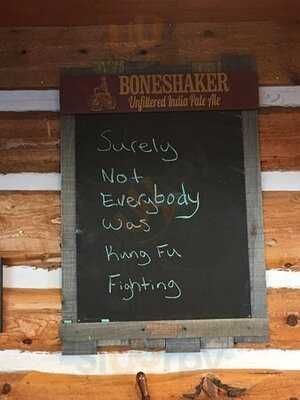 BONESHAKER
Unfiltered India Pale Ale
Surely
Not
Everybody
was
Kung Fu
Fighting